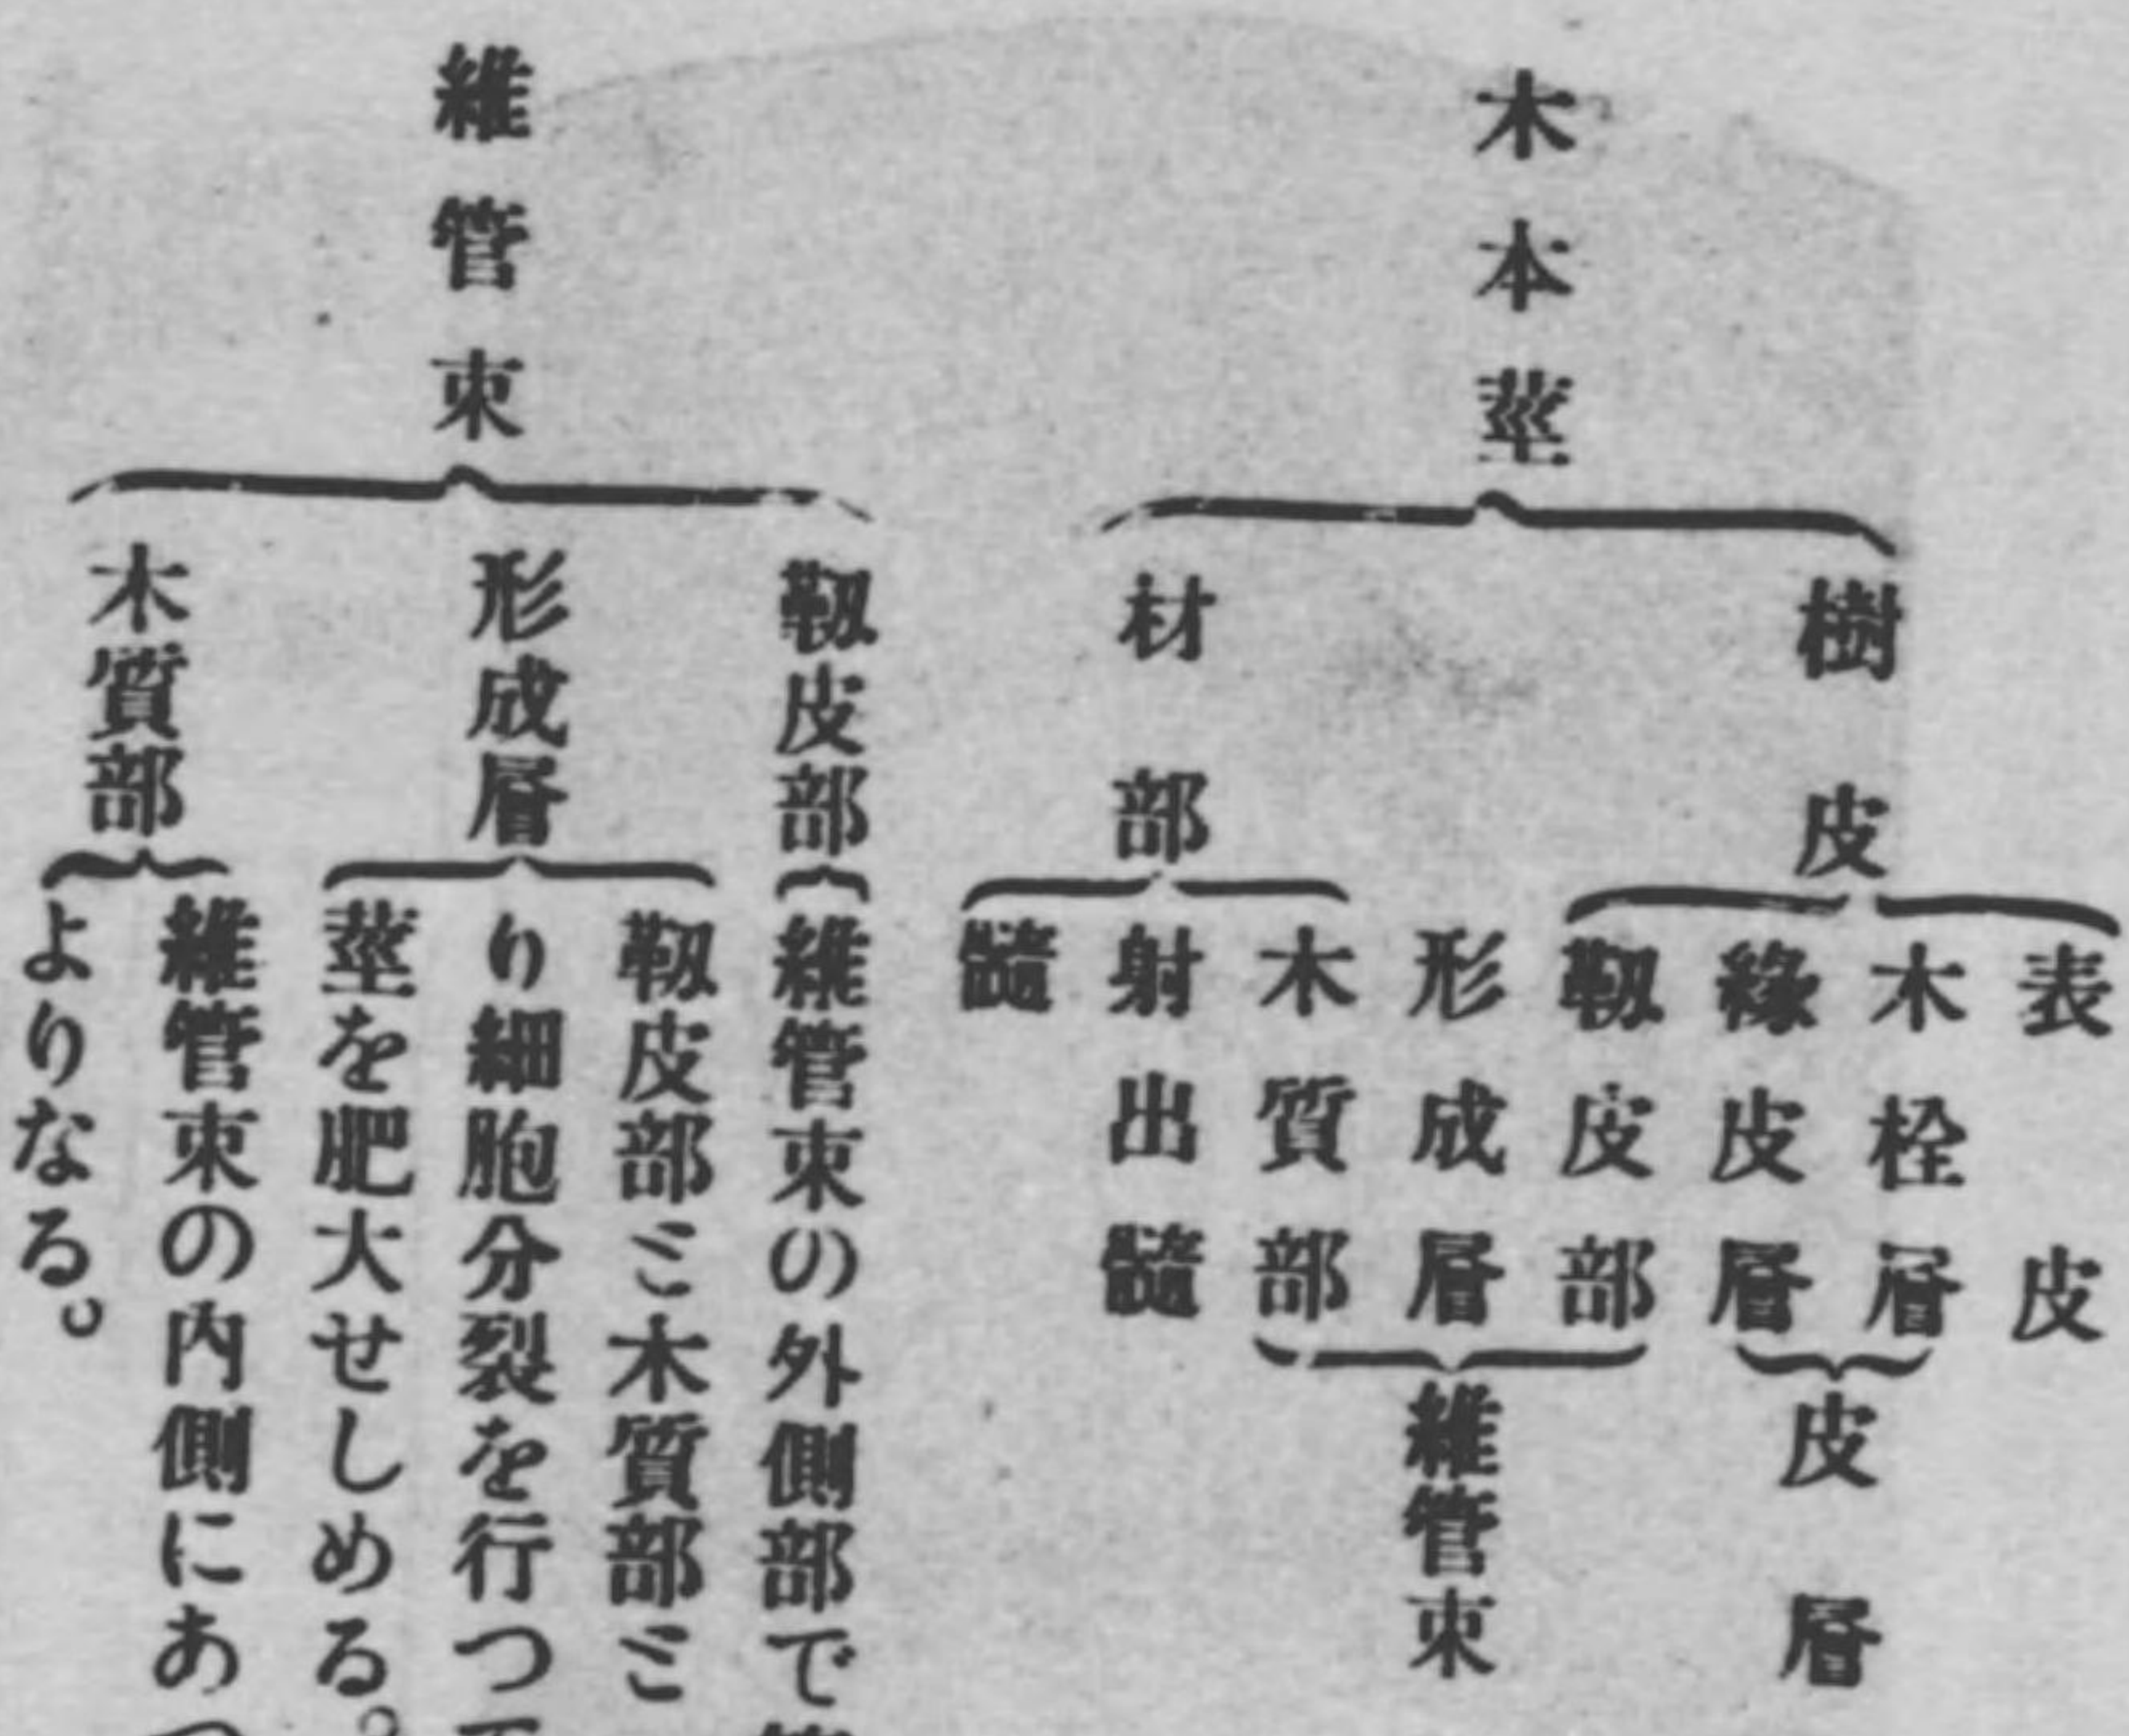 木本莖
樹皮
表皮
木栓層
綠皮層
皮層
靱皮部
形成層
維管束
材部
木質部
射出髓
髓
維管束
靱皮部
維管束の外側部で
形成層
靱皮部ミ木質部ミ
り細胞分裂を行つて
莖を肥大せしめる。
木質部
維管束の內側にあつ
よりなる。